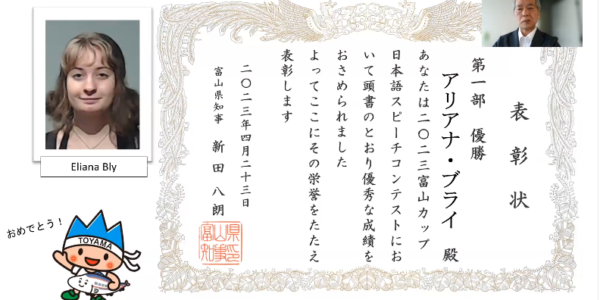 表彰状
第一部 優勝
アリアナ・ブライ 殿
あなたは二〇二三富山カップ
日本語スピーチコンテストにお
いて頭書のとおり優秀な成績を
おさめられました
よってここにその栄誉をたたえ
表彰します
二〇二三年四月二十三日
富山県知事 新田 八朗
富山県知事印
Eliana Bly
おめでとう!
TOYAMA